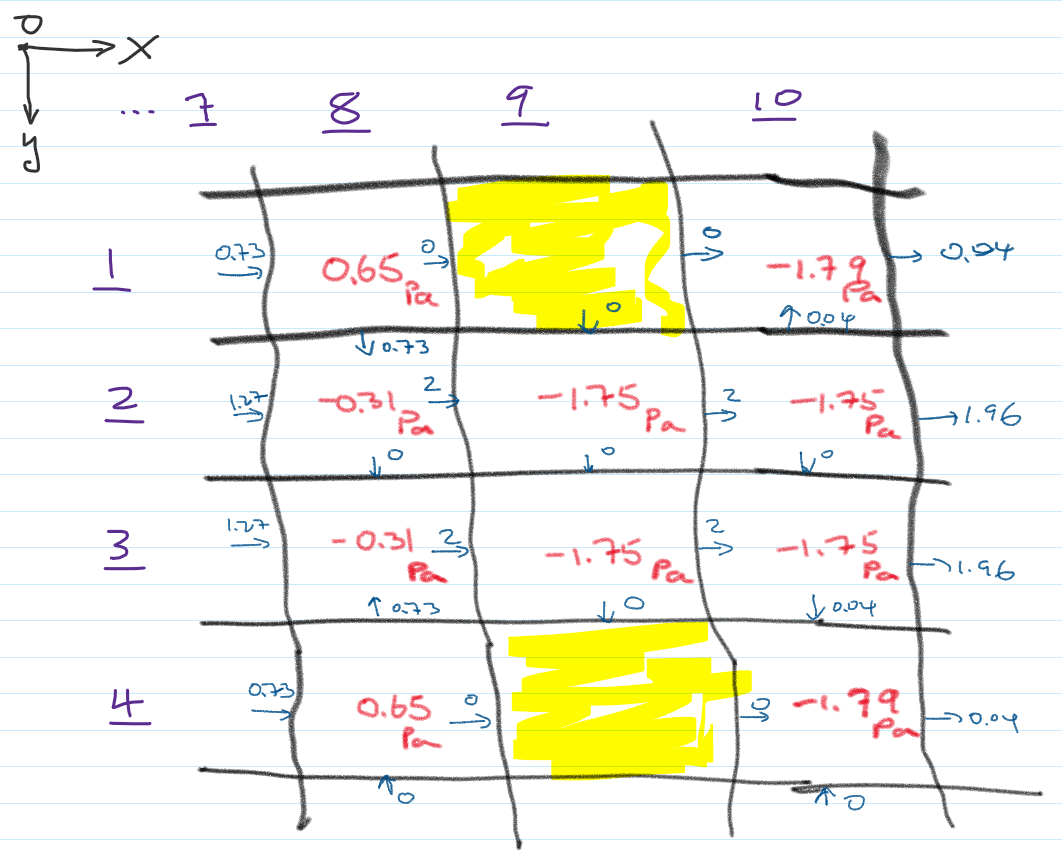 0
X
y
... 7 8 9 10
1 0.73 0.65 Pa 0 0 -1.79 Pa 0.04
0.73 0 0.04
2 1.27 -0.31 Pa 2 -1.75 Pa 2 -1.75 Pa 1.96
0 0 0
3 1.27 -0.31 Pa 2 -1.75 Pa 2 -1.75 Pa 1.96
0.73 0 0.04
4 0.73 0.65 Pa 0 0 -1.79 Pa 0.04
0 0